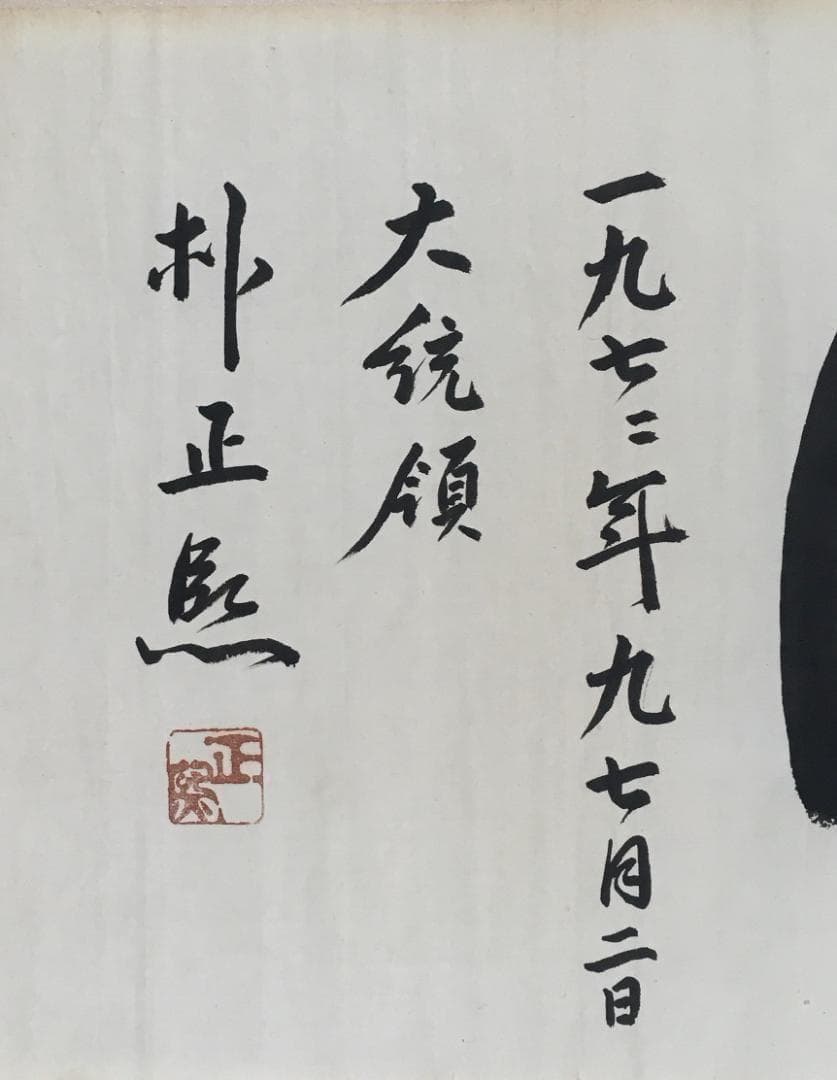 一九七二年九七月二日
大統領
朴正熙
正熙